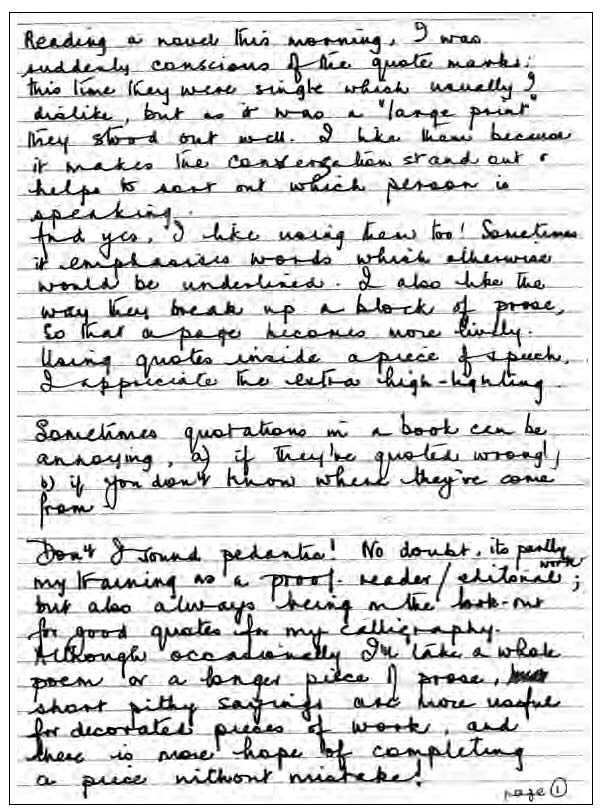 Reading a novel this morning, I was
suddenly conscious of the quote marks:
this time they were single which usually I
dislike, but as it was a "large print"
they stood out well. I like them because
it makes the conversation stand out &
helps to sort out which person is
speaking.
And yes, I like using them too! Sometimes
it emphasises words which otherwise
would be underlined. I also like the
way they break up a block of prose,
so that a page becomes more lively.
Using quotes inside a piece of speech,
I appreciate the extra high-lighting.
Sometimes quotations in a book can be
annoying, a) if they're quoted wrongly
b) if you don't know where they've come
from
Don't I sound pedantic! No doubt, its partly
my training as a proof-reader/editorial work;
but also always being on the look-out
for good quotes for my calligraphy.
Although occasionally I'll take a whole
poem or a longer piece of prose,
short pithy sayings are more useful
for decorated pieces of work, and
there is more hope of completing
a piece without mistake!
page 1